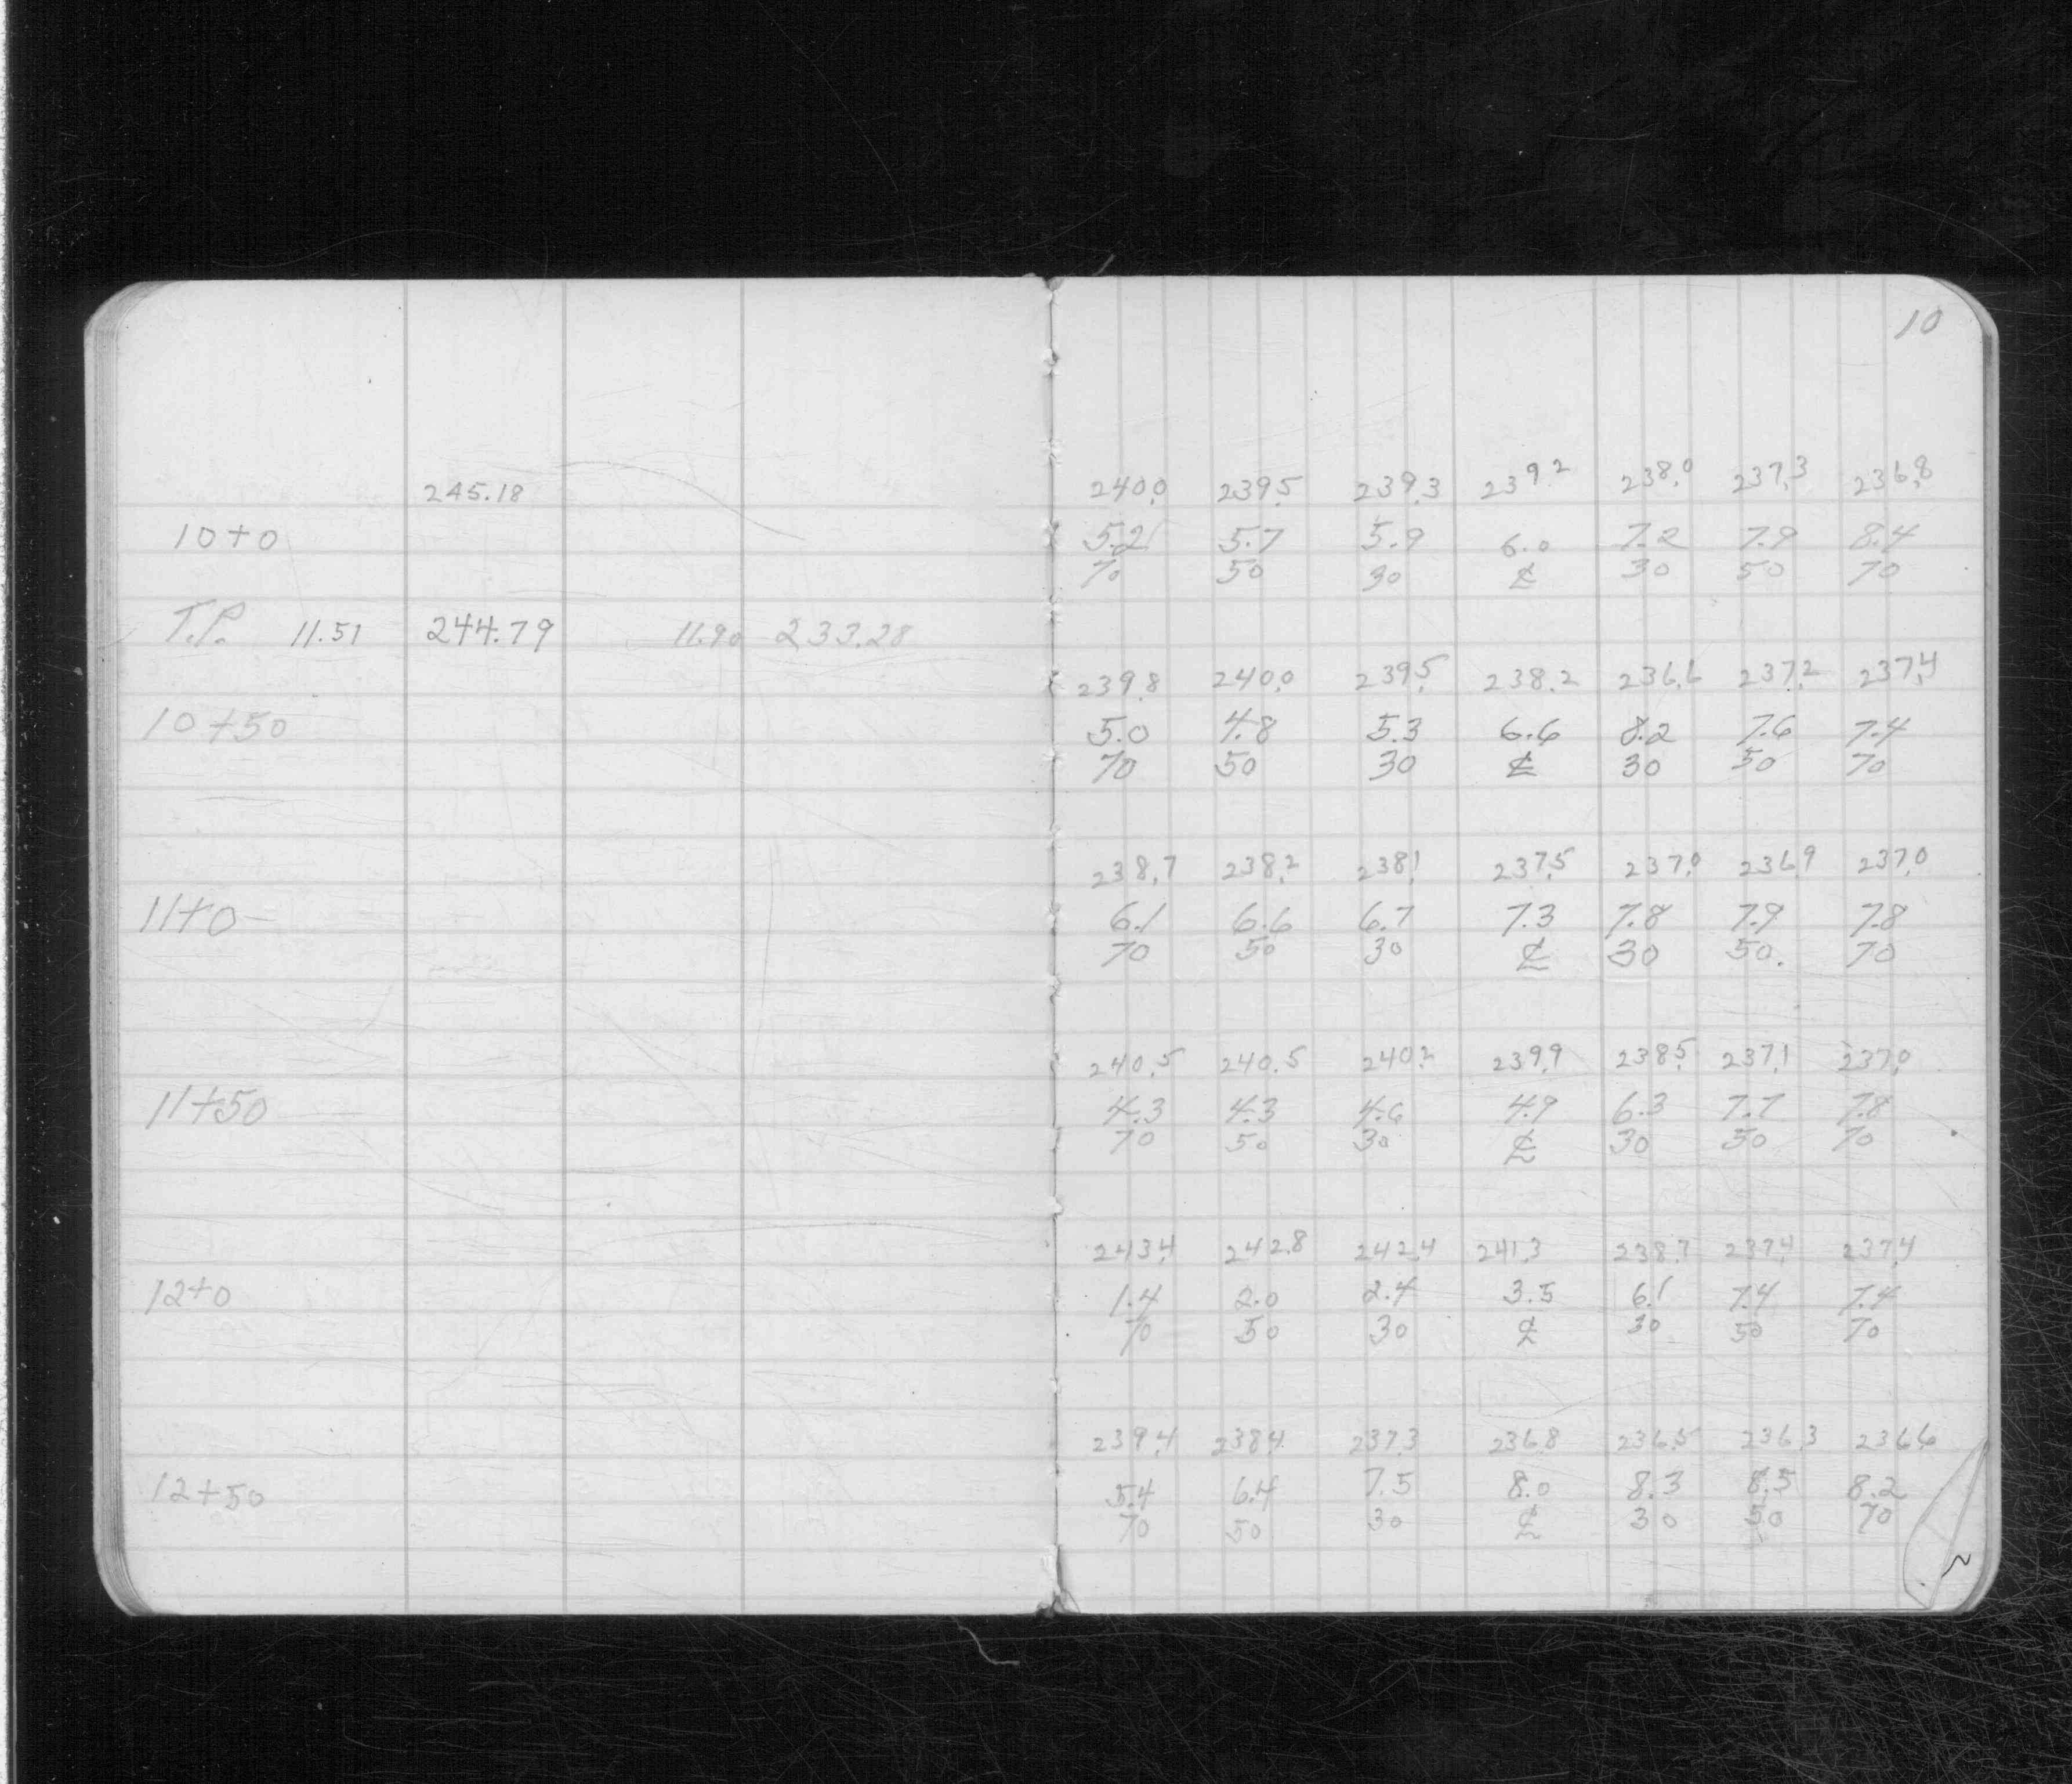 10
245.18 240.0 239.5 239.3 239.2 238.0 237.3 236.8
10+0 5.2 5.7 5.9 6.0 7.2 7.9 8.4
70 50 30 ℄ 30 50 70
T.P. 11.51 244.79 11.90 233.28
239.8 240.0 239.5 238.2 236.6 237.2 237.4
10+50 5.0 4.8 5.3 6.6 8.2 7.6 7.4
70 50 30 ℄ 30 50 70
238.7 238.2 238.1 237.5 237.0 236.9 237.0
11+0 6.1 6.6 6.7 7.3 7.8 7.9 7.8
70 50 30 ℄ 30 50. 70
240.5 240.5 240.2 239.9 238.5 237.1 237.0
11+50 4.3 4.3 4.6 4.9 6.3 7.7 7.8
70 50 30 ℄ 30 50 70
243.4 242.8 242.4 241.3 238.7 237.4 237.4
12+0 1.4 2.0 2.4 3.5 6.1 7.4 7.4
70 50 30 ℄ 30 50 70
239.4 238.4 237.3 236.8 236.5 236.3 236.6
12+50 5.4 6.4 7.5 8.0 8.3 8.5 8.2
70 50 30 ℄ 30 50 70